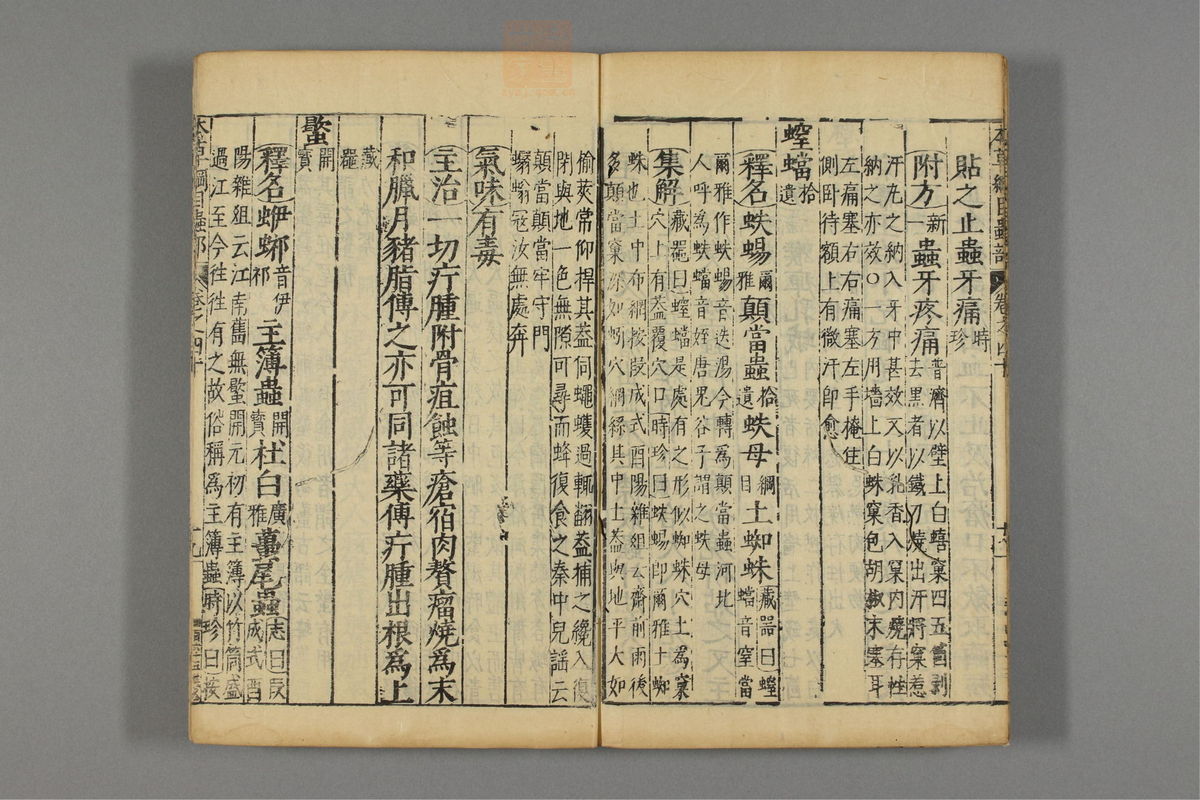 本草綱目蟲部 卷之四十
貼之止蟲牙痛時珍
附方新一蟲牙疼痛普濟以壁上白蟢窠四五箇剥
去黑者以鐵刀燒出汗將窠惹
汗丸之納入牙中甚效又以乳香入窠內燒存性
納之亦效○一方用墻上白蛛窠包胡椒末塞耳
左痛塞右右痛塞左手掩住
側卧待額上有微汗即愈
螲蟷拾遺
釋名蛈蝪爾雅顛當蟲拾遺蛈母綱目土蜘蛛藏器曰螲
蟷音窒當
爾雅作蛈蝪音迭湯今轉為顛當蟲河北
人呼為蛈蟷音姪唐鬼谷子謂之蛈母
集解藏器曰螲蟷是處有之形似蜘蛛穴土為窠
穴上有蓋覆穴口時珍曰蛈蝪即爾雅土蜘
蛛也土中布網按段成式酉陽雜組云齋前雨後
多顛當窠深如蚓穴網絲其中土蓋與地平大如
榆莢常仰捍其蓋伺蠅蠖過輒翻蓋捕之纔入復
閉與地一色無隙可尋而蜂復食之秦中兒謠云
顛當顛當牢守門
蠮螉冠汝無處奔
氣味有毒
主治一切疔腫附骨疽蝕等瘡宿肉贅瘤燒為末
和臘月豬脂傅之亦可同諸藥傅疔腫出根為上
藏器
䘌開寶
釋名蛜𧌴音伊祁主簿蟲開寶杜白廣雅蠆尾蟲志曰段
成式酉
陽雜組云江南舊無䘌開元初有主簿以竹筒盛
過江至今往往有之故俗稱為主簿蟲時珍曰按
本草綱目蟲部 卷之四十